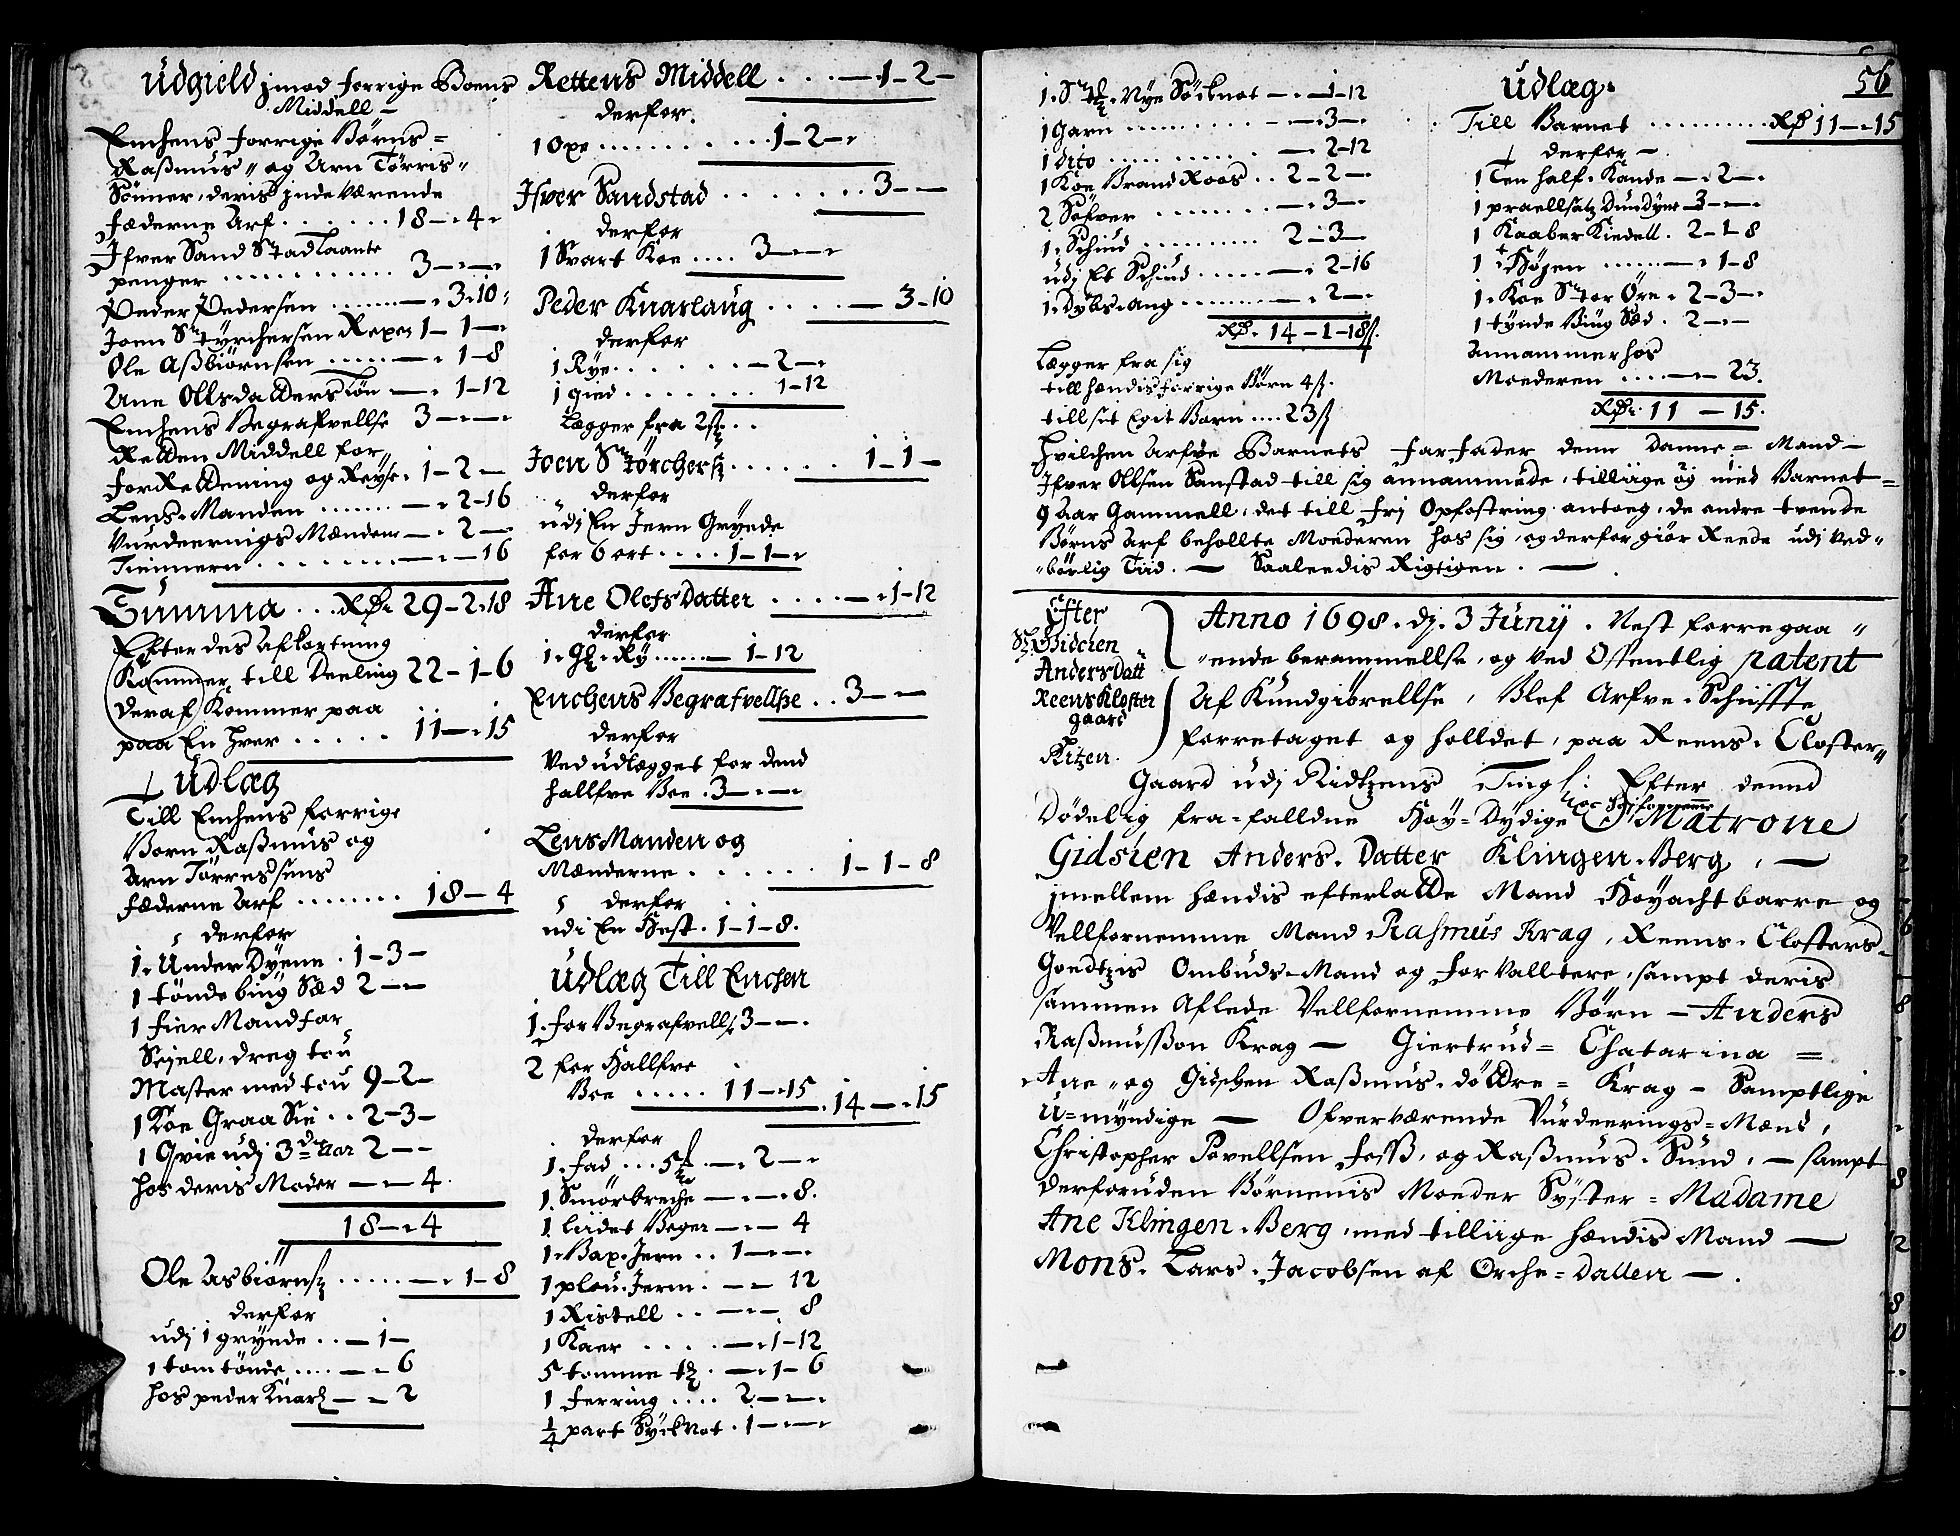 Udgield jmod forrige Boens
Middell –
Enchens forrige Børns =
Raßmus " og Arn Tørris "
Sønner, deris jnde værende
Fæderne Arf . . . . . . 18 – . 4 .
Ifver Sand Stad Laante
penger . . . . . . . . . . 3 – . –
Peder Pedersen . . . . . – . 3 . 10
Joen Styrchersen Reper 1 – 1 –
Ole Aßbiørnsen . . . . . – . 1 – 8
Ane Olls datters Løn – . 1 – 12
Enchens Begrafvellse 3 – . –
Retten Middell for
forRettening og Reyse . 1 – 2 –
Lens Manden . . . . . – . 2 – 16
Vurdeernigs Mændene – . 2 –
Tienneren . . . . . . – . – 16
Summa . . . Rdr 29 – 2 . 18
Efter des Afkortning
Kommer till Deeling 22 – 1 – 6
deraf Kommer paa
paa En hver . . . . . 11 – . 15
Udlæg
Till Enchens forrige
Børn Raßmus og
Arn Tørressens
fæderne Arf . . . . . . 18 – 4
derfor
1 . Under Dyene . 1 – 3 –
1 tønde bing Sæd 2 – –
1 fier Mand far
Sejell, dreg tou
Master med tou 9 – 2 –
1 Koe Graa Sie . . 2 – 3 –
1 Qvie udj 3de Aar 2 – –
hos deris Moder – . – 4 .
18 – . 4
Ole Asbiørns . . . . . – . 1 – 8
derfor
udj 1 grynde . . – 1 –
1 tom tønde . . . . – . 6
hos peder Knarl – . 2
Rettens Middell . . . – 1 – 2 –
derfor .
1 Oxe . . . . . . . . . . 1 – 2 – .
Ifver Sandstad . . . . . . . 3 – –
derfor
1 Svart Koe . . . . 3 – . –
Peder Knarlaug . . . . – 3 . 10
derfor
1 Rye . . . . . . – 2 – .
1 gied . . . . . . . . 1 – 12
Lægger fra 2 ß . .
Joen Størchers . . . . . . 1 – 1 –
derfor
udj En Jern Grynde
for 6 ort . . . . 1 – 1 – .
Ane Olefs Datter . . . . – . 1 – 12
derfor
1 . Gl . Ry . . . . . – 1 – 12
Enchens Begrafvellse . . 3 – –
derfor
Ved udlægget for dend
hallfve Boe . 3 – . –
Lens Manden og
Mænderne . . . . . . . 1 – 1 – 8
derfor
udi En Hest . 1 – 1 – 8 .
Udlæg Till Enchen
1 . for Begrafvells 3 – – .
2 for Hallfve
Boe . . . . . 11 – . 15
14 – . 15
derfor
1 . fad . . . 5 ½ – . 2 – .
1 . Smørbreche – . – . 8 .
1 . liidet Beger – . – 4
1 . Bax . Jern . . 1 – . –
1 plou . Jern . – – 12
1 Ristell . . – . – . 8
1 Kaer . . . . – . 1 – 12
5 tomme td . – . 1 – 6
1 Ferring . . . . 2 – . –
¼ part Syck Not . 1 – . –
56
1 . St. Nye Söcknot – . – 1 – 12
1 Garn . . . . . . . – . 3 – .
1 dito . . . . . . . . . – . 2 – 12
1 Koe Brand Roos . . 2 – 2 – .
2 Søfver . . . . . . . – . 3 – .
1 . Schind . . . . . . . . . 2 – 3 –
udj Et Schind . . . . . – . 2 – 16
1 . Dybs . Ang . . . . . . . – . 2 – .
Rdr . 14 – 1 – 18 ß .
Lægger fra sig
till hændis forrige Børn 4 ß .
till sit Egit Barn . . . . 23 ß
Udlæg .
Till Barnet . . . . . . . . Rdr 11 – . 15
derfor –
1 Ten half . Kande – . 2 – .
1 praellsatz Dundyne 3 – . –
1 Kaaber Kiedell . 2 – 1 – 8
1 Høyen . . . . . – . 1 – 8
1 . Koe Stor Øre . 2 – 3 – .
1 tynde Biug Sæd . 2 – . –
annammer hos
Moederen . . . . – . – 23 .
Rdr . 11 – 15 .
Hvilchen Arfve Barnets farfader denn danne = Mand –
Ifver Ollsen Sanstad till sig annammede, tilliige og med Barnet =
9 Aar Gammell, det till frj Opfostring antoeg, de andre tvende
Børns Arf behollte Moederen hos sig, og derfor giør Reede udj Ved =
= børlig Tiid . – Saaleedis Rigtigen . –
Efter
Sl. Gidsien
Anders Datt
Reens Kloster
gaard
Ritzen .
Anno 1698 . dj . 3 Junij . Nest forregaa "
" ende berammellse, og Ved Offentlig patent
Af Kundgiørellse, Blef Arfve . Schiffte
forretaget og holldet, paa Reens . Closter "
Gaard udj Ridtzens Tingl : Efter dennd
Dødelig fra = falldne Høy = Dydige Matrone
Gidsien Anders . Datter Klingen . Berg , –
jmellem hændis efterlatte Mand Høyachtbarre og
Vellfornemme Mand Rasmus Krag, Reens . Closters =
Goedtzis Ombuds = Mand og forvalltere, sampt deris
sammen Aflede Vellfornemme Børn – Anders
Raßmusson Krag – Giertrud = Chatarina =
Ane " og Gidschen Raßmus . døttre = Krag – Samptlige
U = myndige – Ofverværende Vurdeerings = Mænd,
Christopher Povellsen Foss, og Raßmus . Sund, – sampt
derforuden Børnenis Moeder Syster = Madame
Ane Klingen . Berg, med tilliige hændis Mand –
Mons . Lars . Jacobsen af Orche = dallen – .